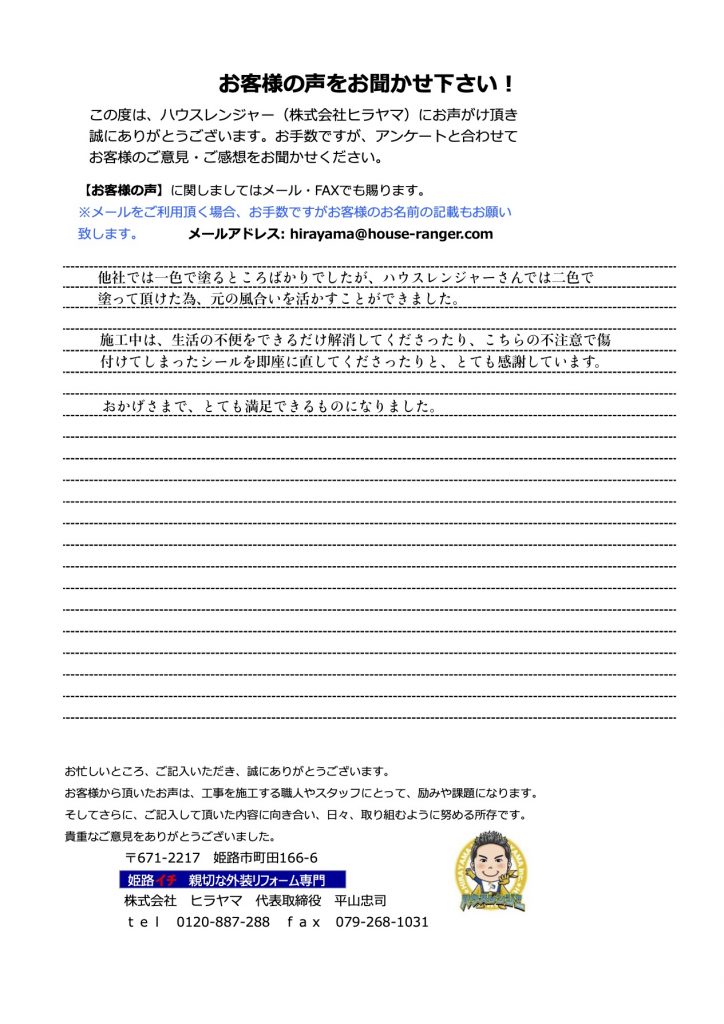 お客様の声をお聞かせ下さい！
この度は、ハウスレンジャー（株式会社ヒラヤマ）にお声がけ頂き
誠にありがとうございます。お手数ですが、アンケートと合わせて
お客様のご意見・ご感想をお聞かせください。
【お客様の声】に関しましてはメール・FAXでも賜ります。
※メールをご利用頂く場合、お手数ですがお客様のお名前の記載もお願い
致します。 メールアドレス: hirayama@house-ranger.com
他社では一色で塗るところばかりでしたが、ハウスレンジャーさんでは二色で
塗って頂けた為、元の風合いを活かすことができました。
施工中は、生活の不便をできるだけ解消してくださったり、こちらの不注意で傷
付けてしまったシールを即座に直してくださったりと、とても感謝しています。
おかげさまで、とても満足できるものになりました。
お忙しいところ、ご記入いただき、誠にありがとうございます。
お客様から頂いたお声は、工事を施工する職人やスタッフにとって、励みや課題になります。
そしてさらに、ご記入して頂いた内容に向き合い、日々、取り組むように努める所存です。
貴重なご意見をありがとうございました。
〒671-2217 姫路市町田166-6
姫路イチ 親切な外装リフォーム専門
株式会社 ヒラヤマ 代表取締役 平山忠司
ｔｅｌ 0120-887-288 ｆａｘ 079-268-1031